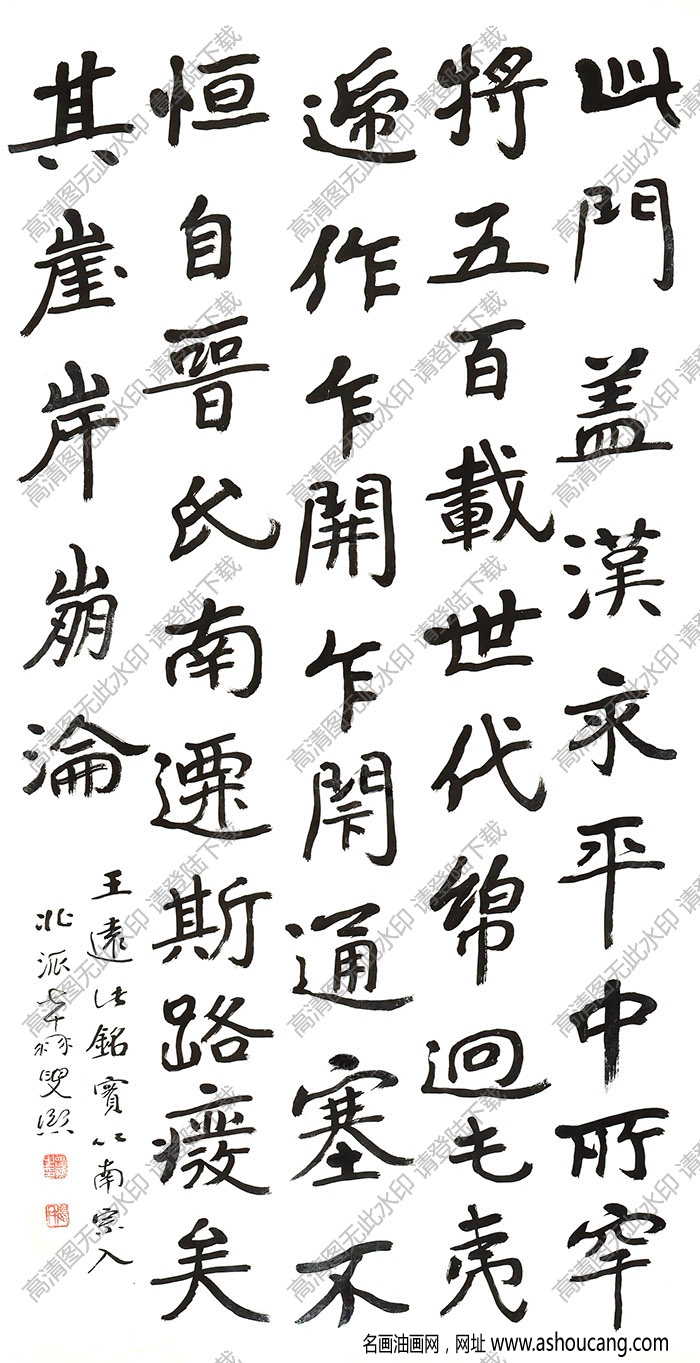 此門盖漢永平中所穿
將五百載世代綿迴屯夷
遞作乍開乍閇通塞不
恒自晉氏南遷斯路廢矣
其崖岸崩淪
王遠此銘實以南宗入
北派
高清图无此水印 请登陆下载
名画油画网，网址 www.ashoucang.com